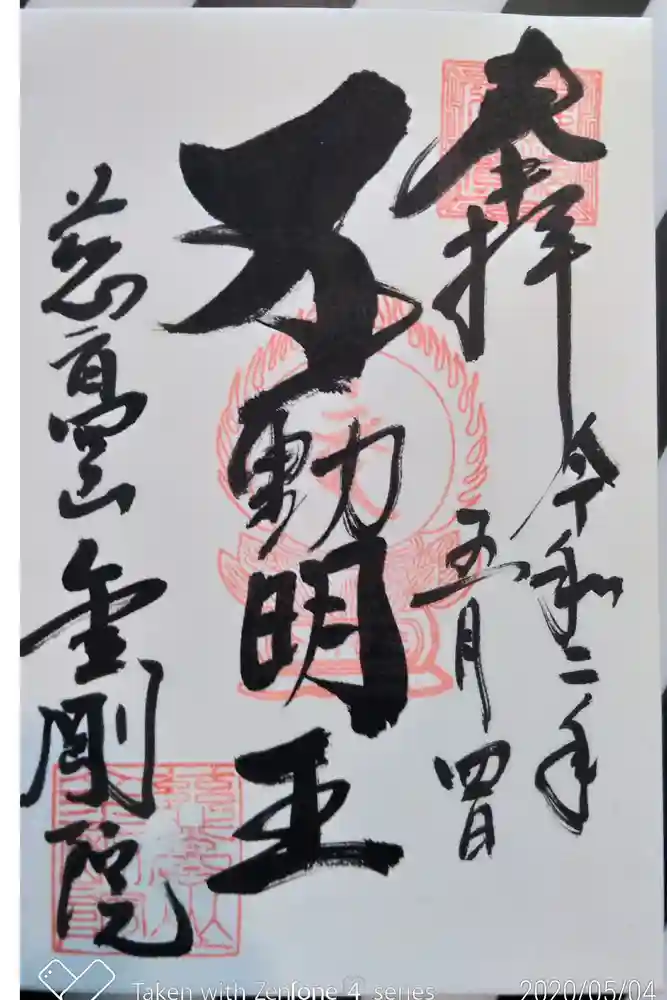 奉拝
令和二年
五月四日
不動明王
慈高山
金剛院
Taken with Zenfone 4 series
2020/05/04